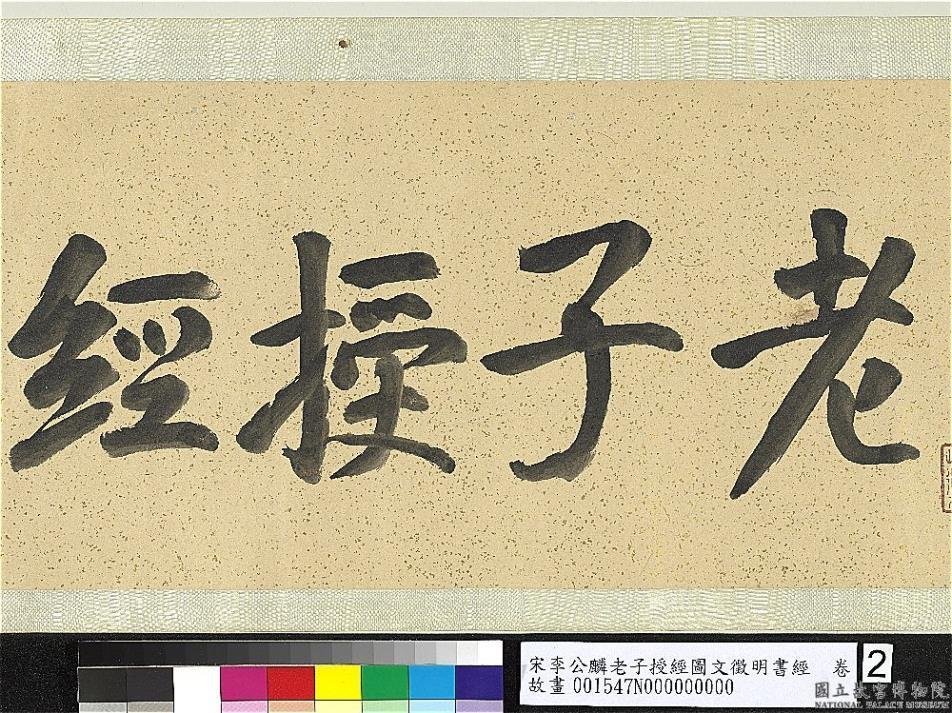 老子授經
宋李公麟老子授經圖文徵明書經 卷 2
故畫 001547N000000000
國立故宮博物院
NATIONAL PALACE MUSEUM